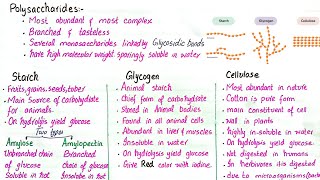 Polysaccharides:-
• Most abundant & most complex
• Branched & tasteless
• Several monosaccharides linked by Glycosidic bonds
• have high molecular weight sparingly soluble in water
Starch Glycogen Cellulose
Starch
• Fruits, grains, seeds, tuber
• Main Source of carbohydrate
for animals.
• On hydrolysis yield glucose
Two types
Amylose Amylopectin
Unbranched Branched
chain of chain
glucose of glucose
Soluble in hot Insoluble in hot
Glycogen
• Animal starch
• Chief form of carbohydrate
• Stored in Animal bodies
• Found in all animal cells
• Abundant in liver & muscles
• Insoluble in water
• On hydrolysis yield glucose
• Give Red color with iodine.
Cellulose
• Most abundant in nature
• Cotton is pure form
• main constituent of cell
wall in plants
• highly in-soluble in water
• On hydrolysis yield glucose
• Not digested in humans
• In herbivores its digested
due to microorganisms